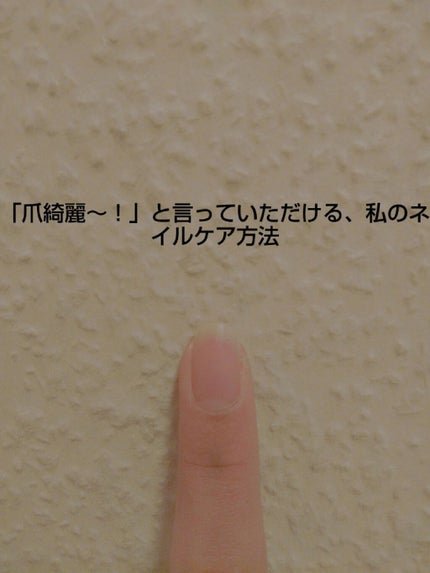 「爪綺麗〜！」と言っていただける、私のネ
イルケア方法